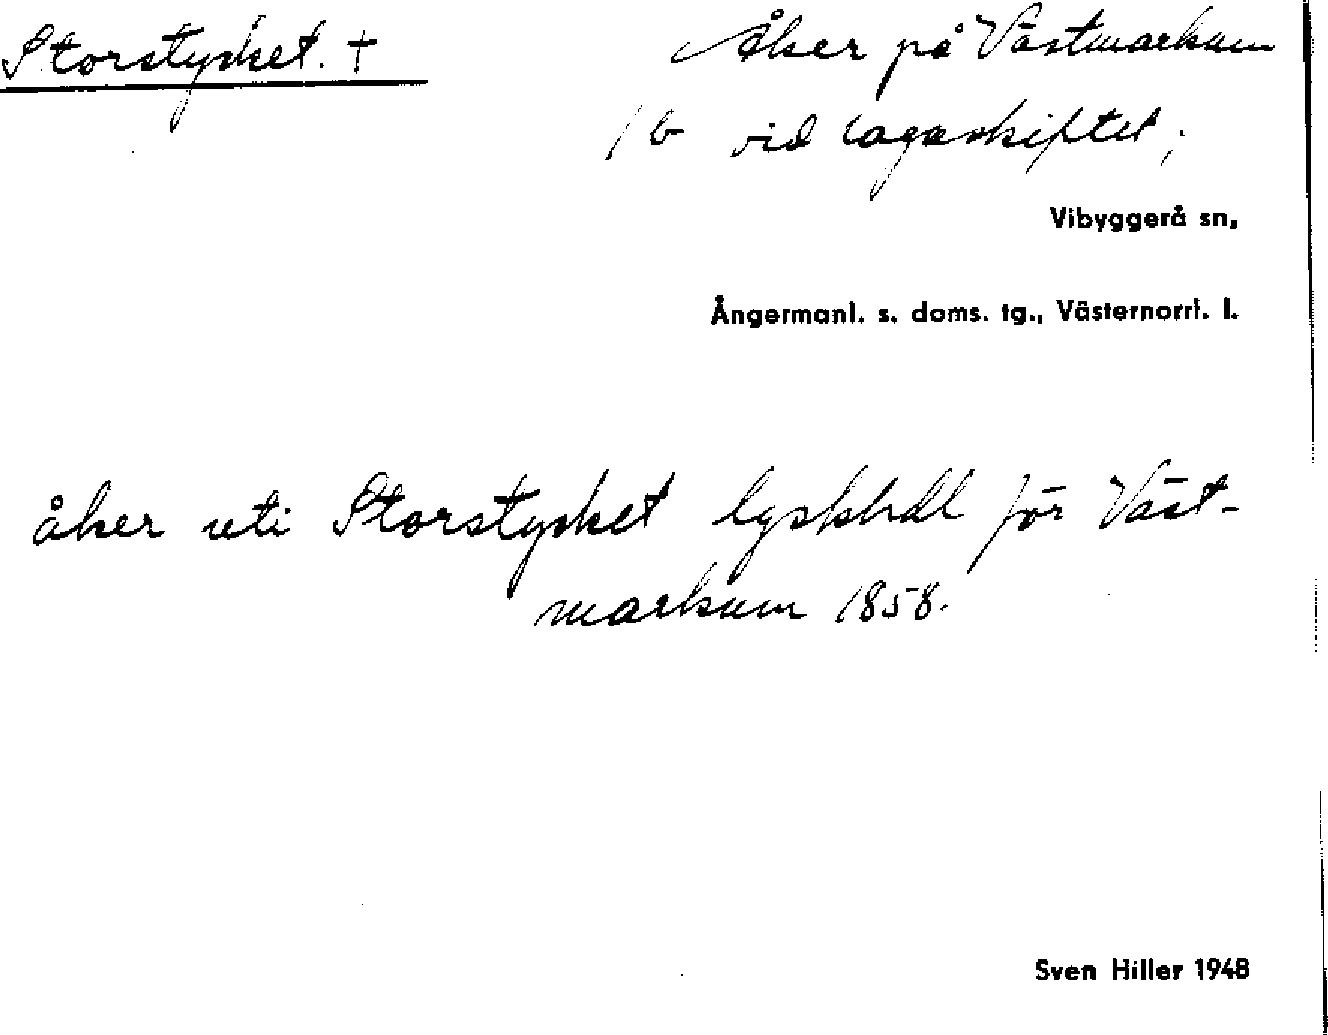 Storstycket. †
Åker på Västmarkum
1 6 vid lagaskiftet;
Vibyggerå sn,
Ångermanl. s. doms. tg., Västernorrl. l.
åker uti Storstycket lgskhdl för Väst-
markum 1858.
Sven Hiller 1948